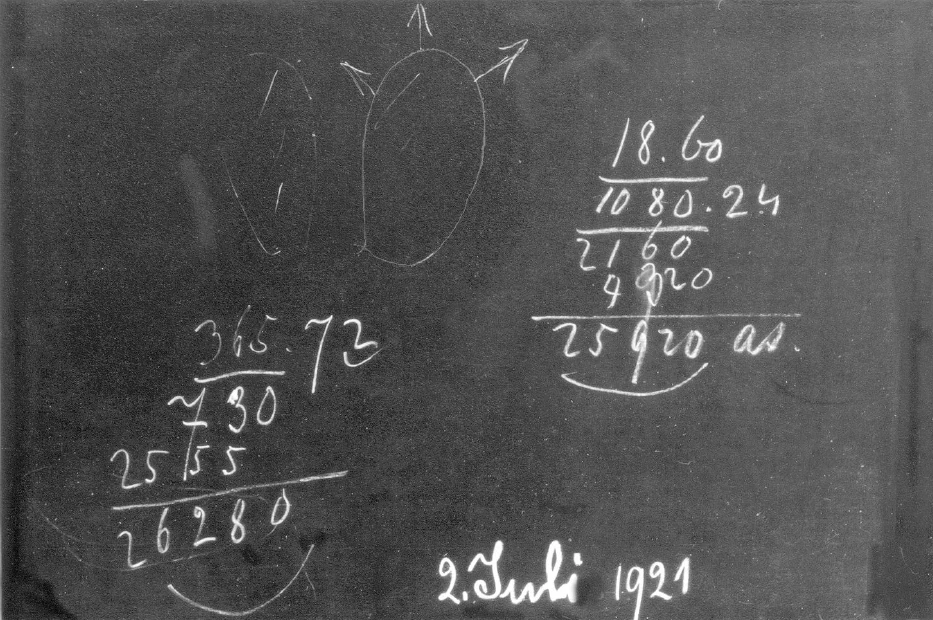 18.60
1080.24
2160
4920
25920 as.
365.72
730
2555
26280
2. Juli 1921